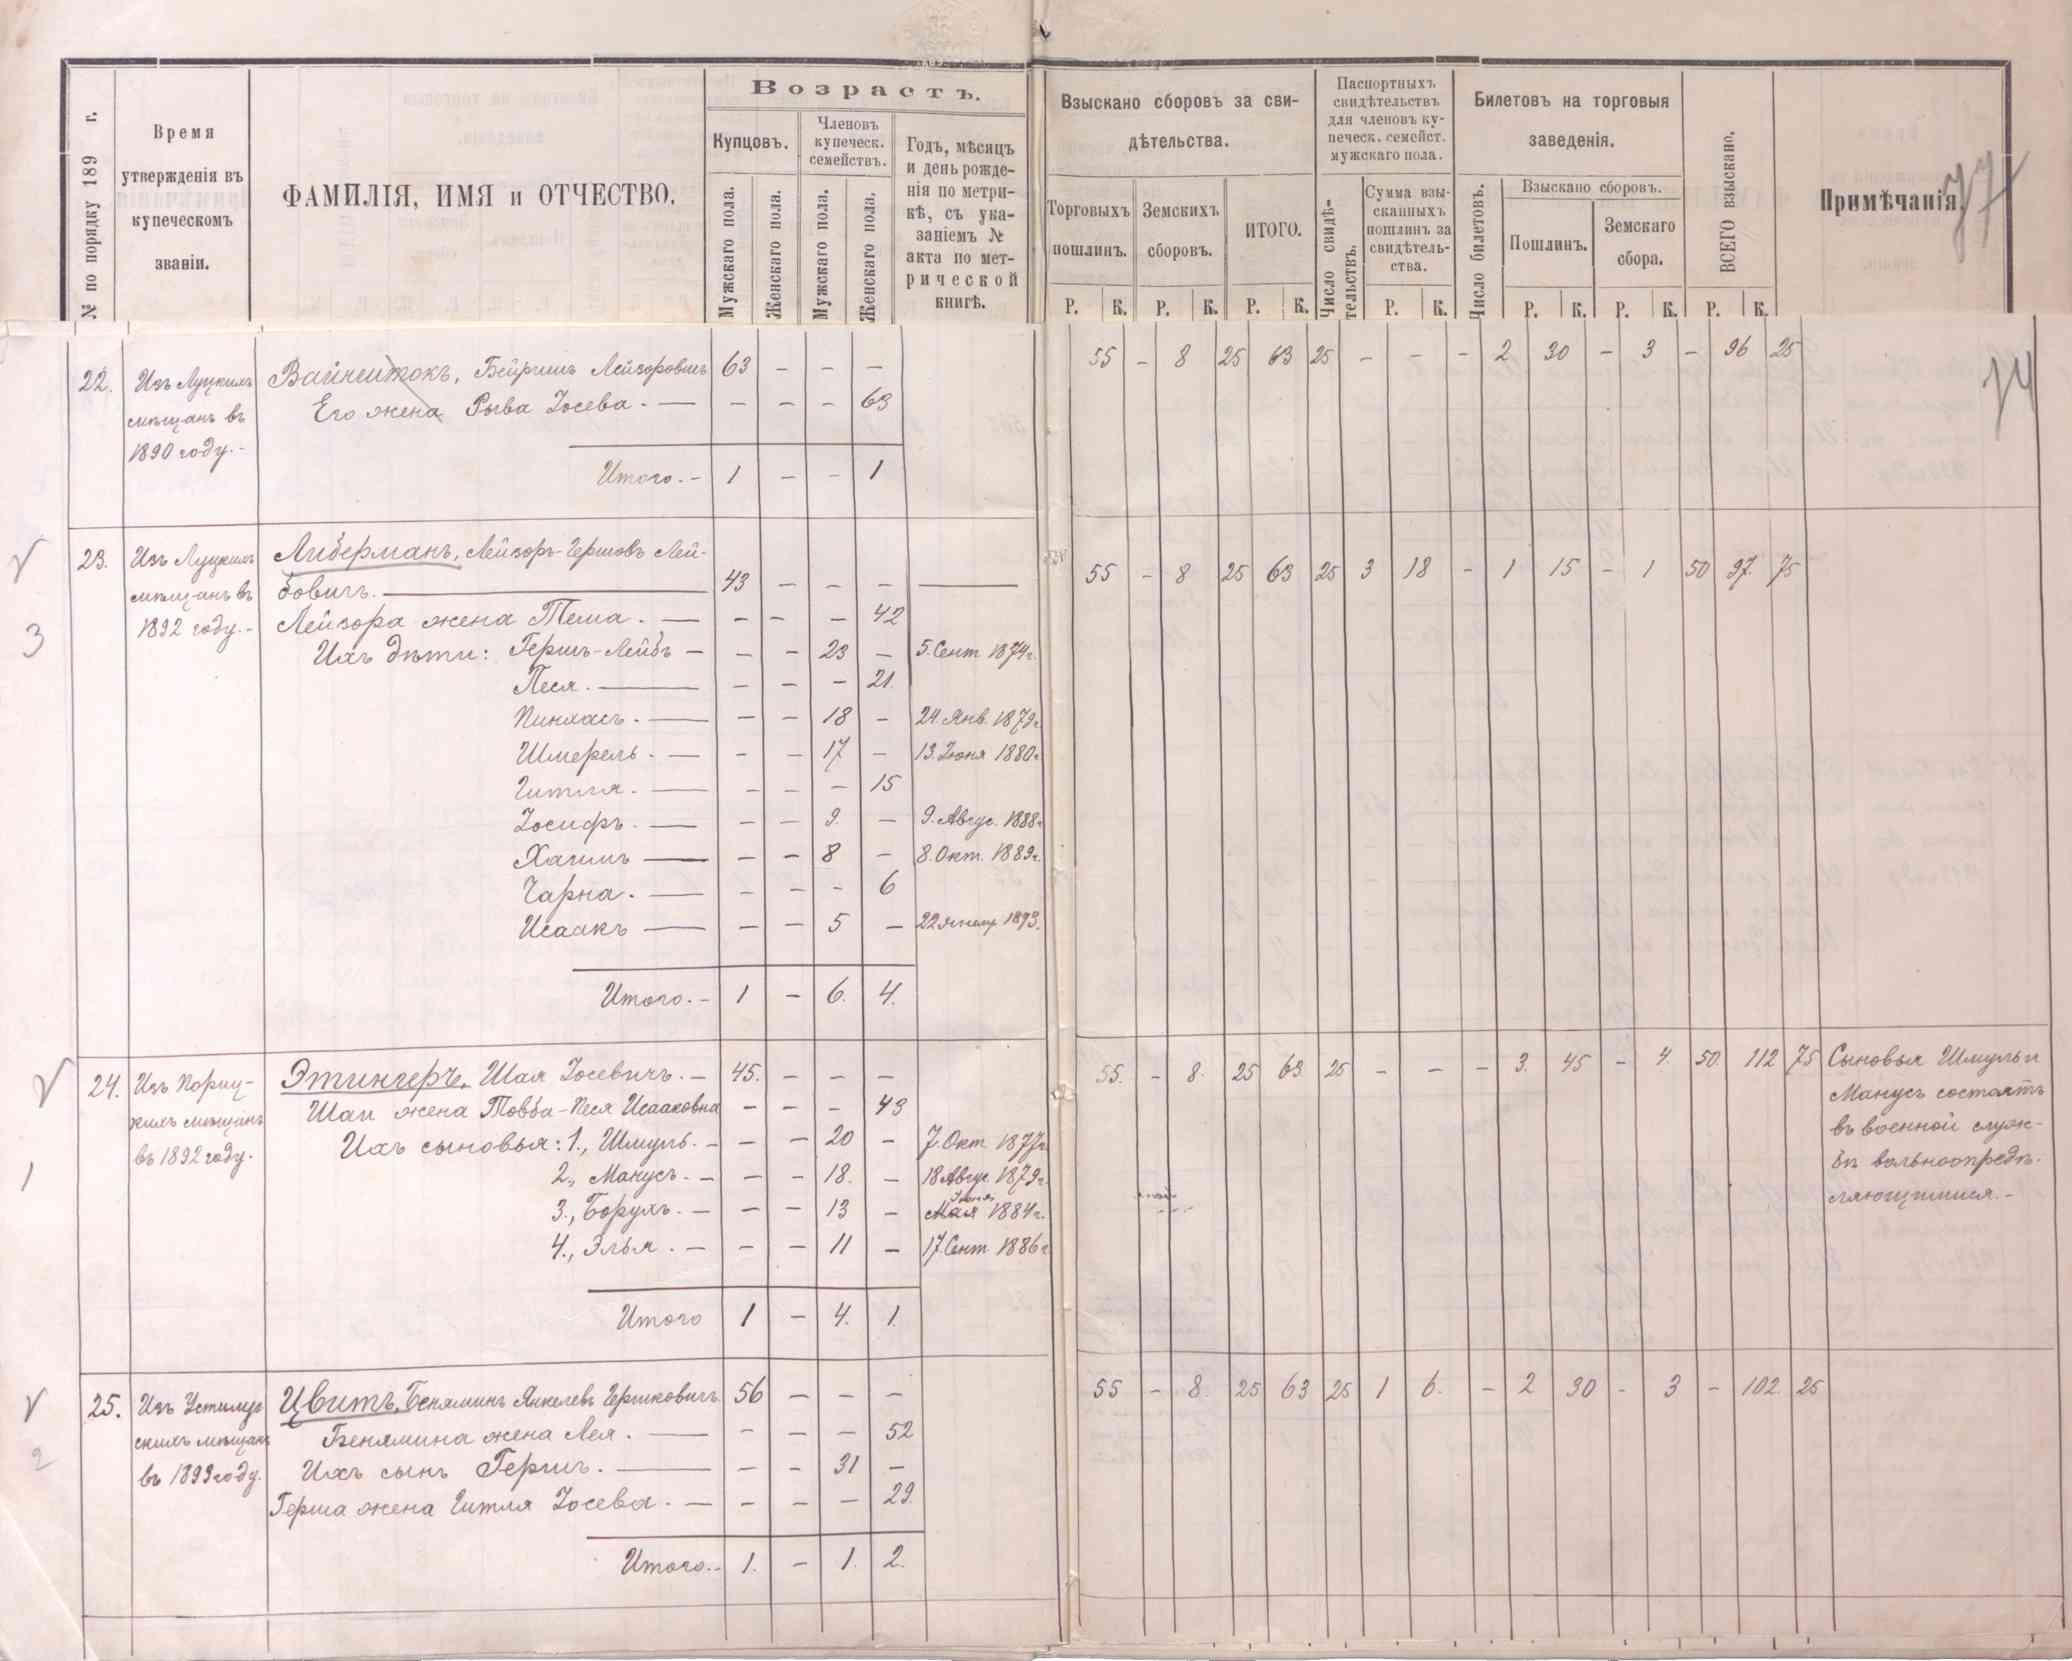 Возрастъ.
№ по порядку 189 г.
Время утвержденія въ купеческомъ званіи.
ФАМИЛІЯ, ИМЯ и ОТЧЕСТВО.
Купцовъ.
Мужскаго пола.
Женскаго пола.
Членовъ купеческ. семействъ.
Мужскаго пола.
Женскаго пола.
Годъ, мѣсяцъ
и день рожде-
нія по метри-
кѣ, съ ука-
заніемъ №
акта по мет-
рической
книгѣ.
Взыскано сборовъ за сви-
дѣтельства.
Торговыхъ пошлинъ.
Земскихъ сборовъ.
ИТОГО.
Паспортныхъ
свидѣтельствъ
для членовъ ку-
печеск. семейст.
мужскаго пола.
Число свидѣ-
тельствъ.
Сумма взы-
сканныхъ
пошлинъ за
свидѣтель-
ства.
Билетовъ на торговыя
заведенія.
Число билетовъ.
Взыскано сборовъ.
Пошлинъ.
Земскаго сбора.
ВСЕГО взыскано.
Примѣчанія.
77
Р. К. Р. К. Р. К. Р. К. Р. К. Р. К. Р. К.
74
22. Изъ Луцкихъ Вайншток, Бейришъ Лейзоровичъ 63 - - - 55 - 8 25 63 25 - - - 2 30 - 3 - 96 25
мѣщанъ въ Его жена Рыва Іосева. - - - - 63
1890 году.-
Итого.- 1 - - 1
23. Изъ Луцкихъ Либерманъ, Лейзоръ-Гершовъ Лей-
мѣщанъ въ бовичъ. 43 - - - 55 - 8 25 63 25 3 18 - 1 15 - 1 50 97. 75
3 1892 году.- Лейзора жена Тема. - - - - 42
Ихъ дѣти: Гершъ-Лейбъ - - - 23 - 5. Сент 1874 г.
Песя. - - - 21.
Пинхасъ. - - 18 - 24. Янв. 1879 г.
Шмерель. - - 17 - 13. Іюня 1880 г.
Гитля. - - - 15
Іосифъ. - - 9. - 9. Авгус. 1888 г.
Хаимъ - - 8 - 8. Окт. 1889 г.
Чарна. - - - 6
Исаакъ - - 5 - 22 Январ 1893.
Итого.- 1 - 6. 4.
24. Изъ Пориц- Этингеръ, Шая Іосевичъ. - 45. - - - 55. - 8. 25 63. 25 - - - 3. 45 - 4. 50. 112 75 Сыновья Шмуль и
кихъ мѣщанъ Шаи жена Товба-Песя Исааковна - - - 43 Манусъ состоятъ
1 въ 1892 году. Ихъ сыновья: 1., Шмуль. - - - 20 - 7. Окт. 1877 г. въ военной служ-
2., Манусъ. - - - 18. - 18 Авгус. 1879 г. бѣ вольноопредѣ-
3., Борухъ. - - - 13 - Мая Іюня 1884 г. ляющимися.-
4., Элья. - - - 11 - 17. Сент. 1886 г.
Итого 1 - 4. 1.
25. Изъ Устилуг Цвитъ, Беняминъ Янкелевъ Гершковичъ. 56 - - - 55 - 8. 25 63 25 1 6. - 2 30 - 3 - 102. 25
скихъ мѣщанъ Бенямина жена Лея. - - - 52
2 въ 1893 году. Ихъ сынъ Гершъ. - - 31 -
Герша жена Гитля Іосева. - - - - 29.
Итого.- 1. - 1. 2.